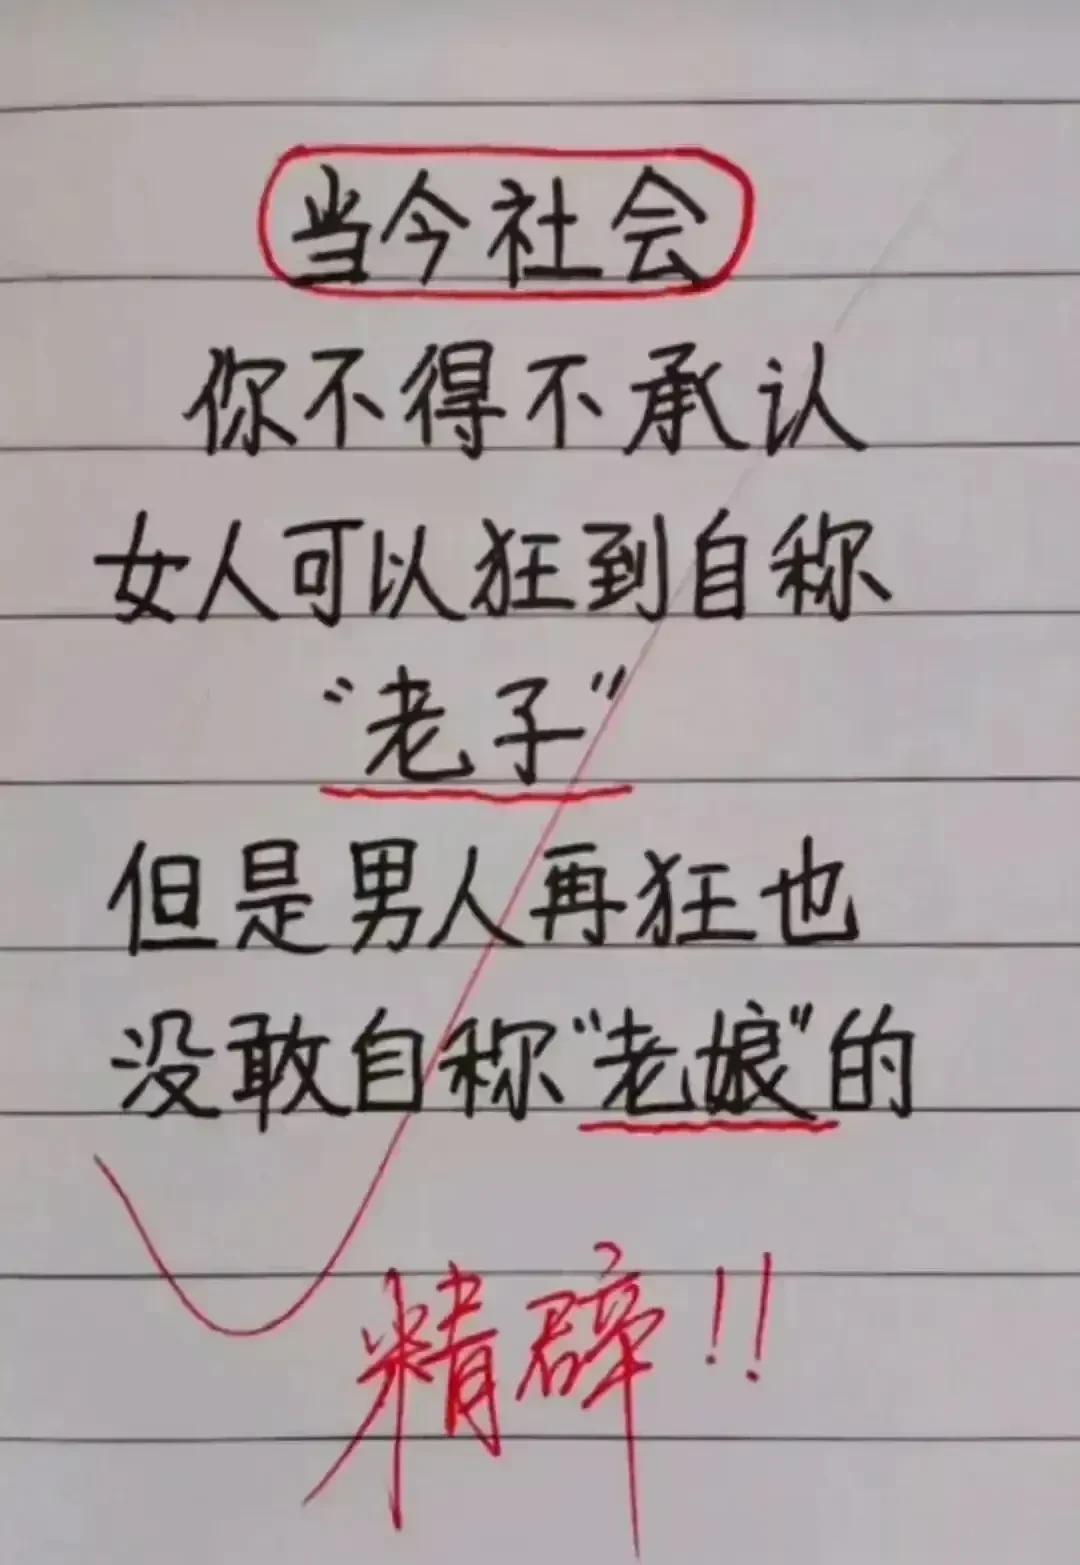 当今社会
你不得不承认
女人可以狂到自称
“老子”
但是男人再狂也
没敢自称“老娘”的
精辟!!